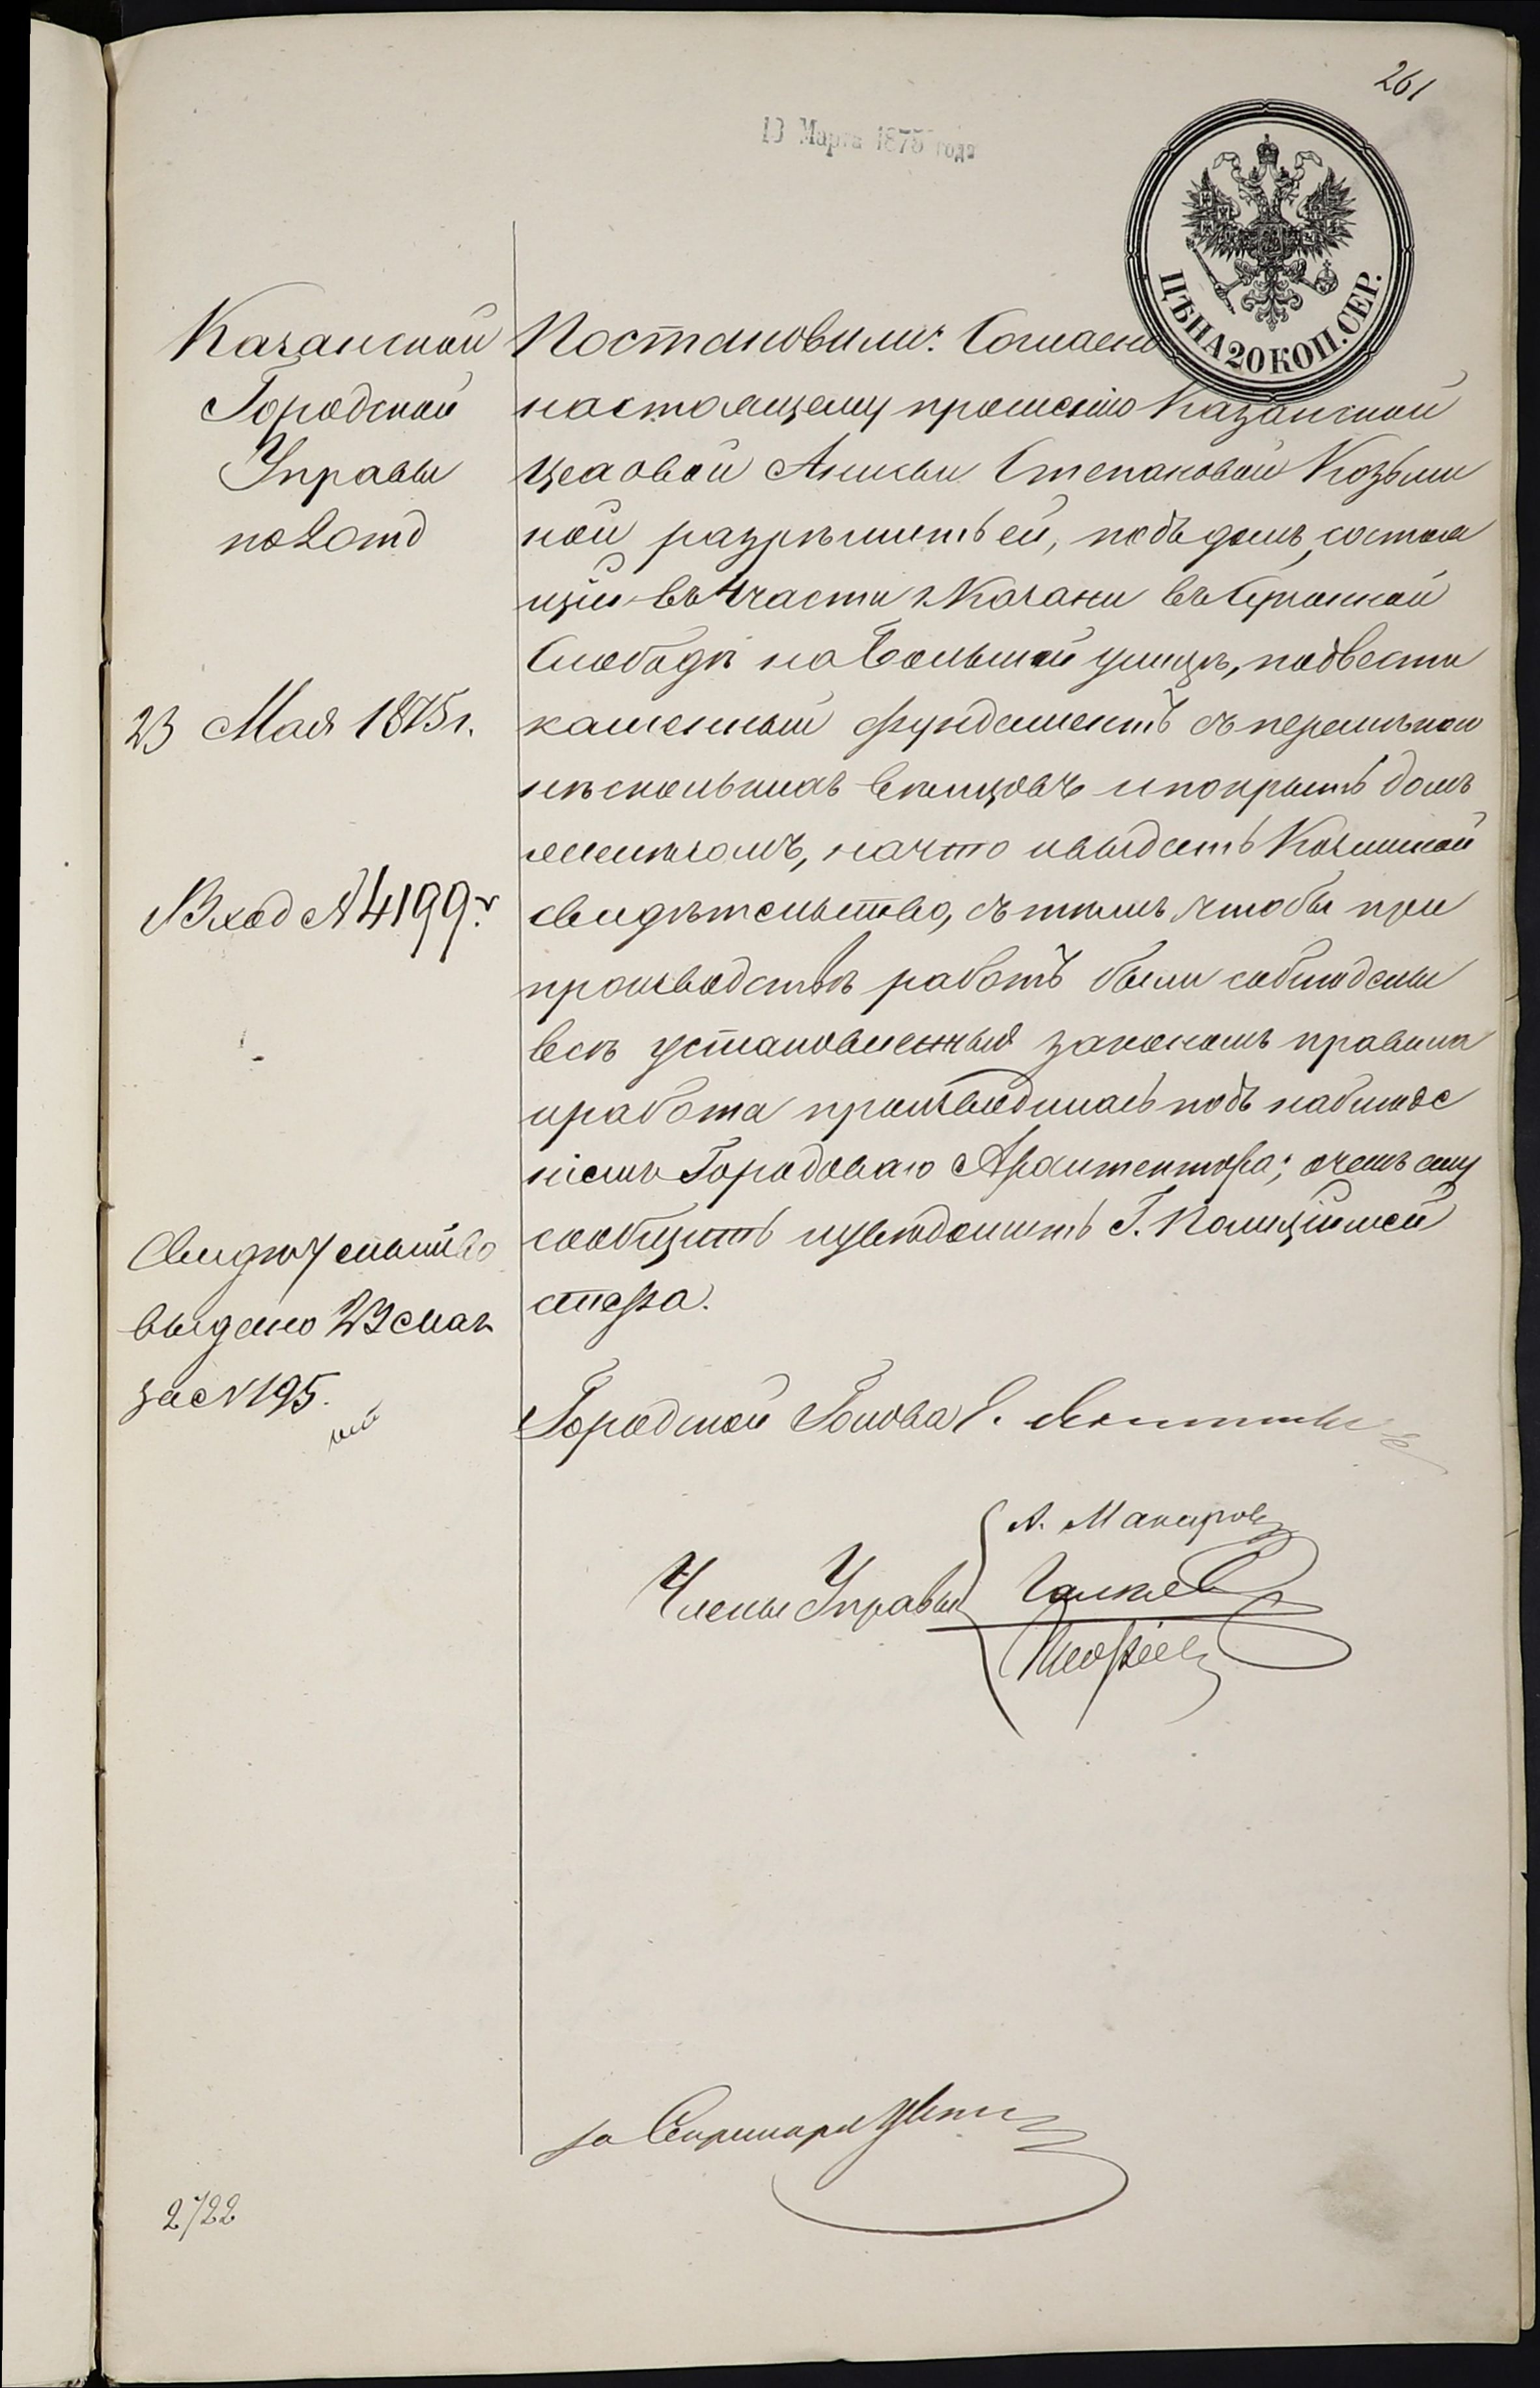 261
13 Марта 1875 года
ЦѢНА 20 КОП. СЕР.
Казанской
Городской
Управы
по 2 отд
23 Мая 1875 г.
Вход № 4199
Свидѣтельство
выдано 23 мая
за № 195.
Постановили: Согласно
настоящему прошенію Казанской
цеховой Анисьи Степановой Козьми
ной разрѣшить ей, подъ домъ, состоя
щій въ 4 части г. Казани въ Суконной
Слободѣ на Большой улицѣ, подвести
каменный фундаментъ съ перемѣною
нѣсколькихъ вѣнцовъ и покрыть домъ
желѣзомъ, на что и выдать Козьминой
свидѣтельство, съ тѣмъ чтобы при
производствѣ работъ были соблюдены
всѣ установленныя закономъ правила
и работа производилась подъ наблюде
ніемъ Городоваго Архитектора; о чемъ ему
сообщить и увѣдомить Г. Полиціймей
стера.
Городской Голова
А. Макаровъ
Члены Управы
за Секретаря
2722